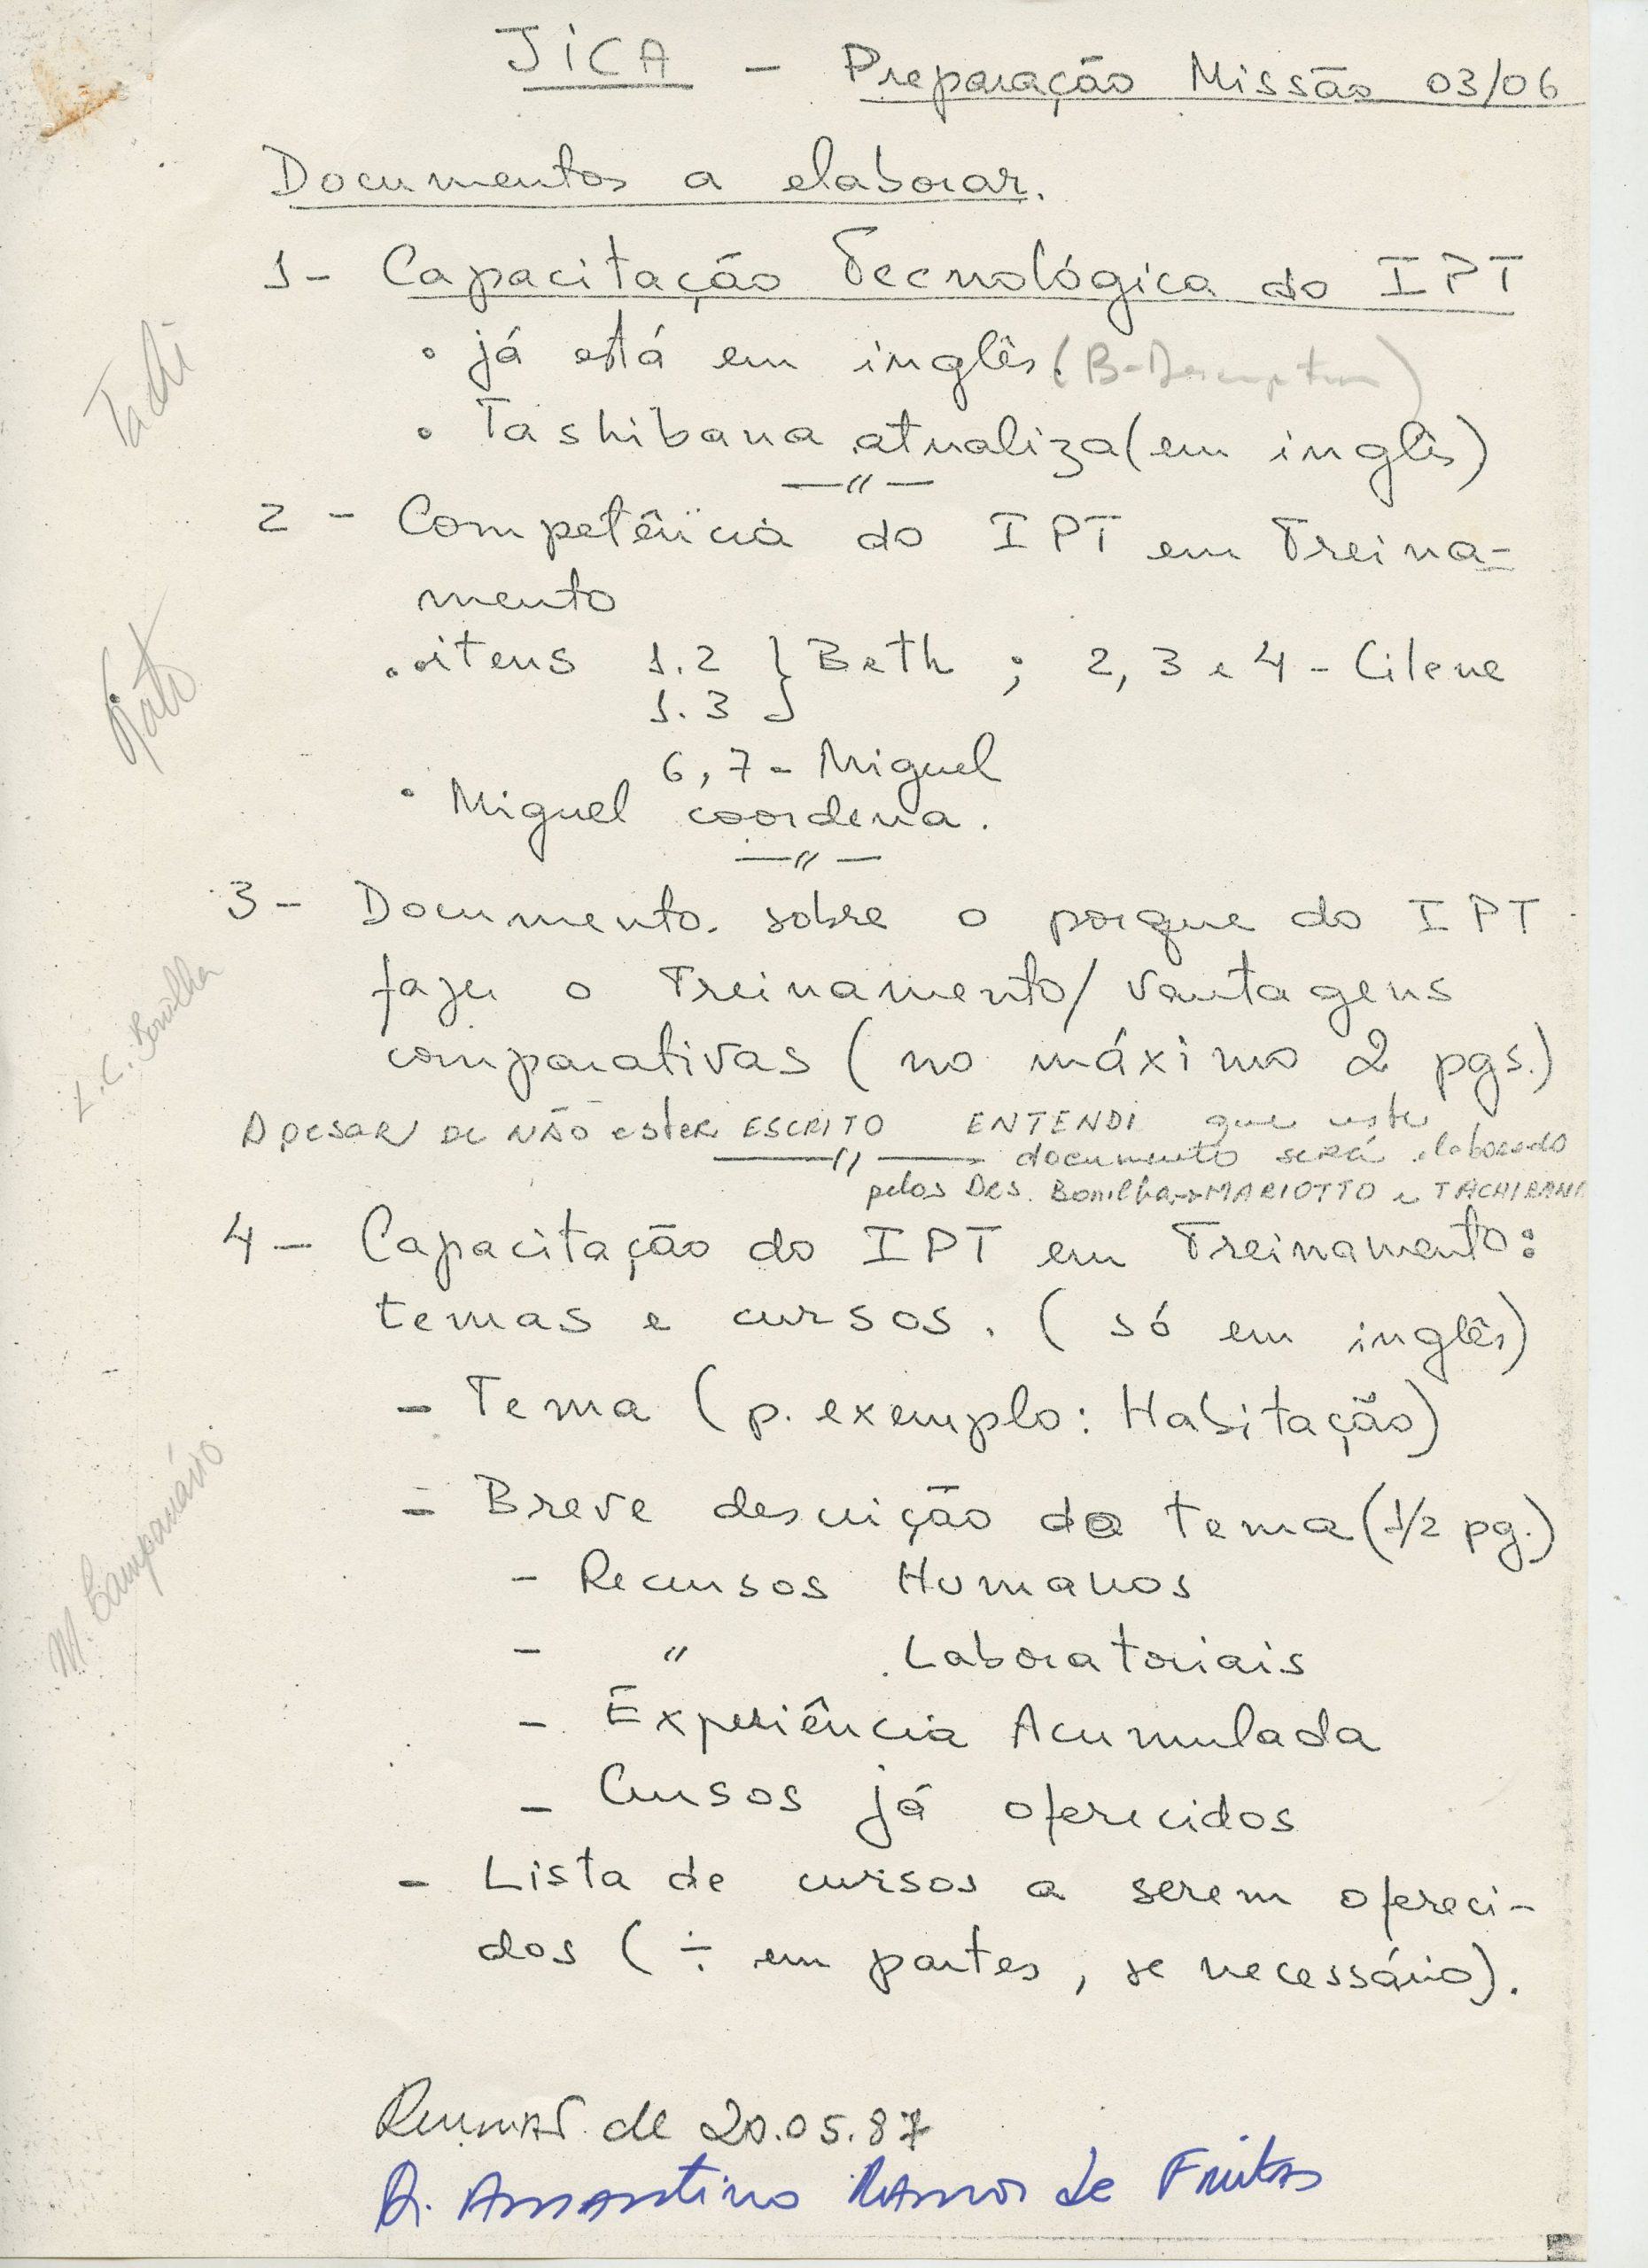 JICA - Preparação Missão 03/06
Documentos a elaborar.
1- Capacitação Tecnológica do IPT
• já está em inglês (B-Description)
• Tashibana atualiza (em inglês)
Tachi
—"—
2 - Competência do IPT em Treina-
mento
• itens 1.2 } Beth ; 2, 3 e 4 - Cilene
1.3
6, 7 - Miguel
• Miguel coordena.
—"—
3- Documento sobre o porque do IPT
fazer o Treinamento/ Vantagens
comparativas (no máximo 2 pgs.)
L.C. Bonilha
Apesar de NÃO ester ESCRITO ENTENDI que este
—"— documento será elaborado
pelos Drs. Bonilha, MARIOTTO e TACHIBANA
4- Capacitação do IPT em Treinamento:
temas e cursos. (só em inglês)
- Tema (p. exemplo: Habitação)
- Breve descrição do tema (1/2 pg.)
M. Campanário
- Recursos Humanos
- " Laboratoriais
- Experiência Acumulada
- Cursos já oferecidos
- Lista de cursos a serem ofereci-
dos (÷ em partes, se necessário).
Reunião de 20.05.87
Ramos de Freitas